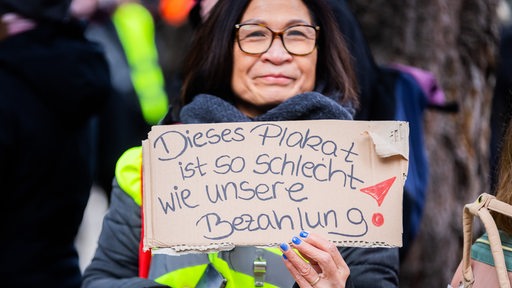 Dieses Plakat
ist so schlecht
wie unsere
Bezahlung!